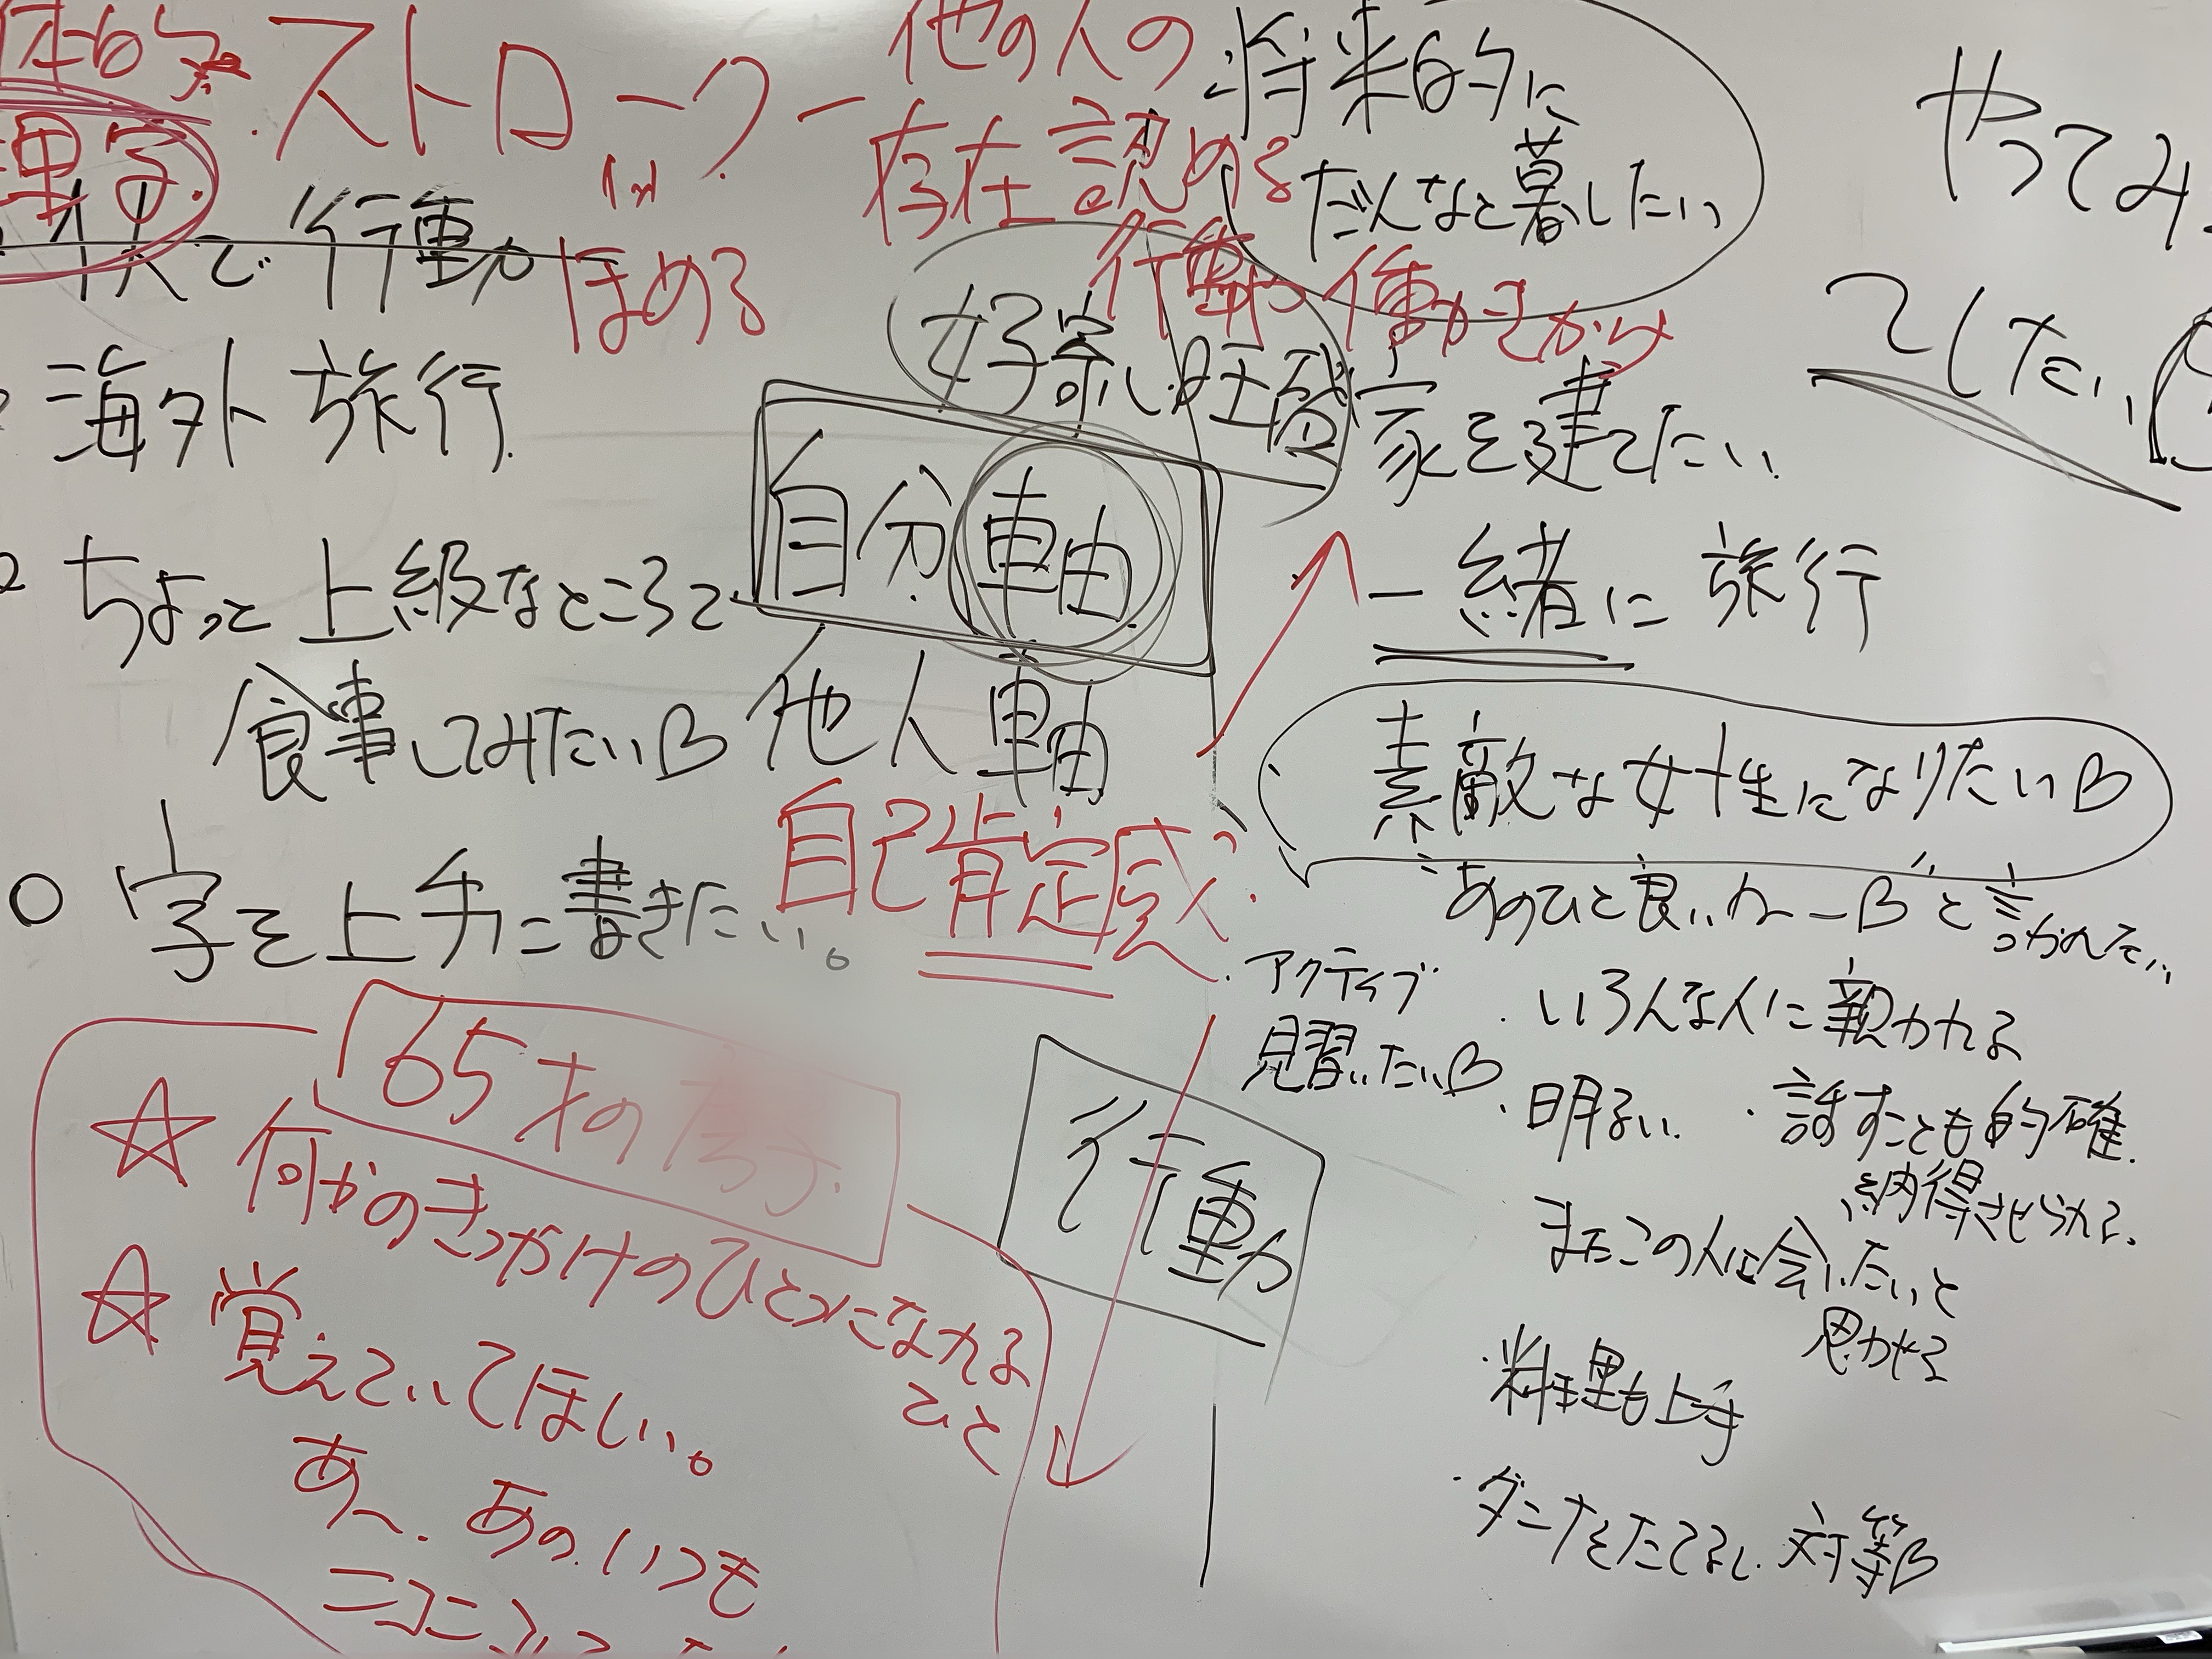 ストローク
他の人の
存在認める
行動や働きかけ
ほめる
将来的に
だんなと暮したい
やってみ
てしたい
で行動
海外旅行
好ましい
家を建てたい
自分軸
ちょっと上級なところで
食事してみたい
他人軸
一緒に旅行
素敵な女性になりたい
あのひと良いね
と言われてたい
字を上手に書きたい。
自己肯定感
・アクティブ
見習いたい
・いろんな人に親かれる
・明るい
・話すことも的確
納得させられる
またこの人に会いたいと
思わせる
・料理も上手
・ダンナをたてるし対等
行動
65才の
☆何かのきっかけのひとつになれる
ひと
☆覚えていてほしい。
あ〜、あの、いつも